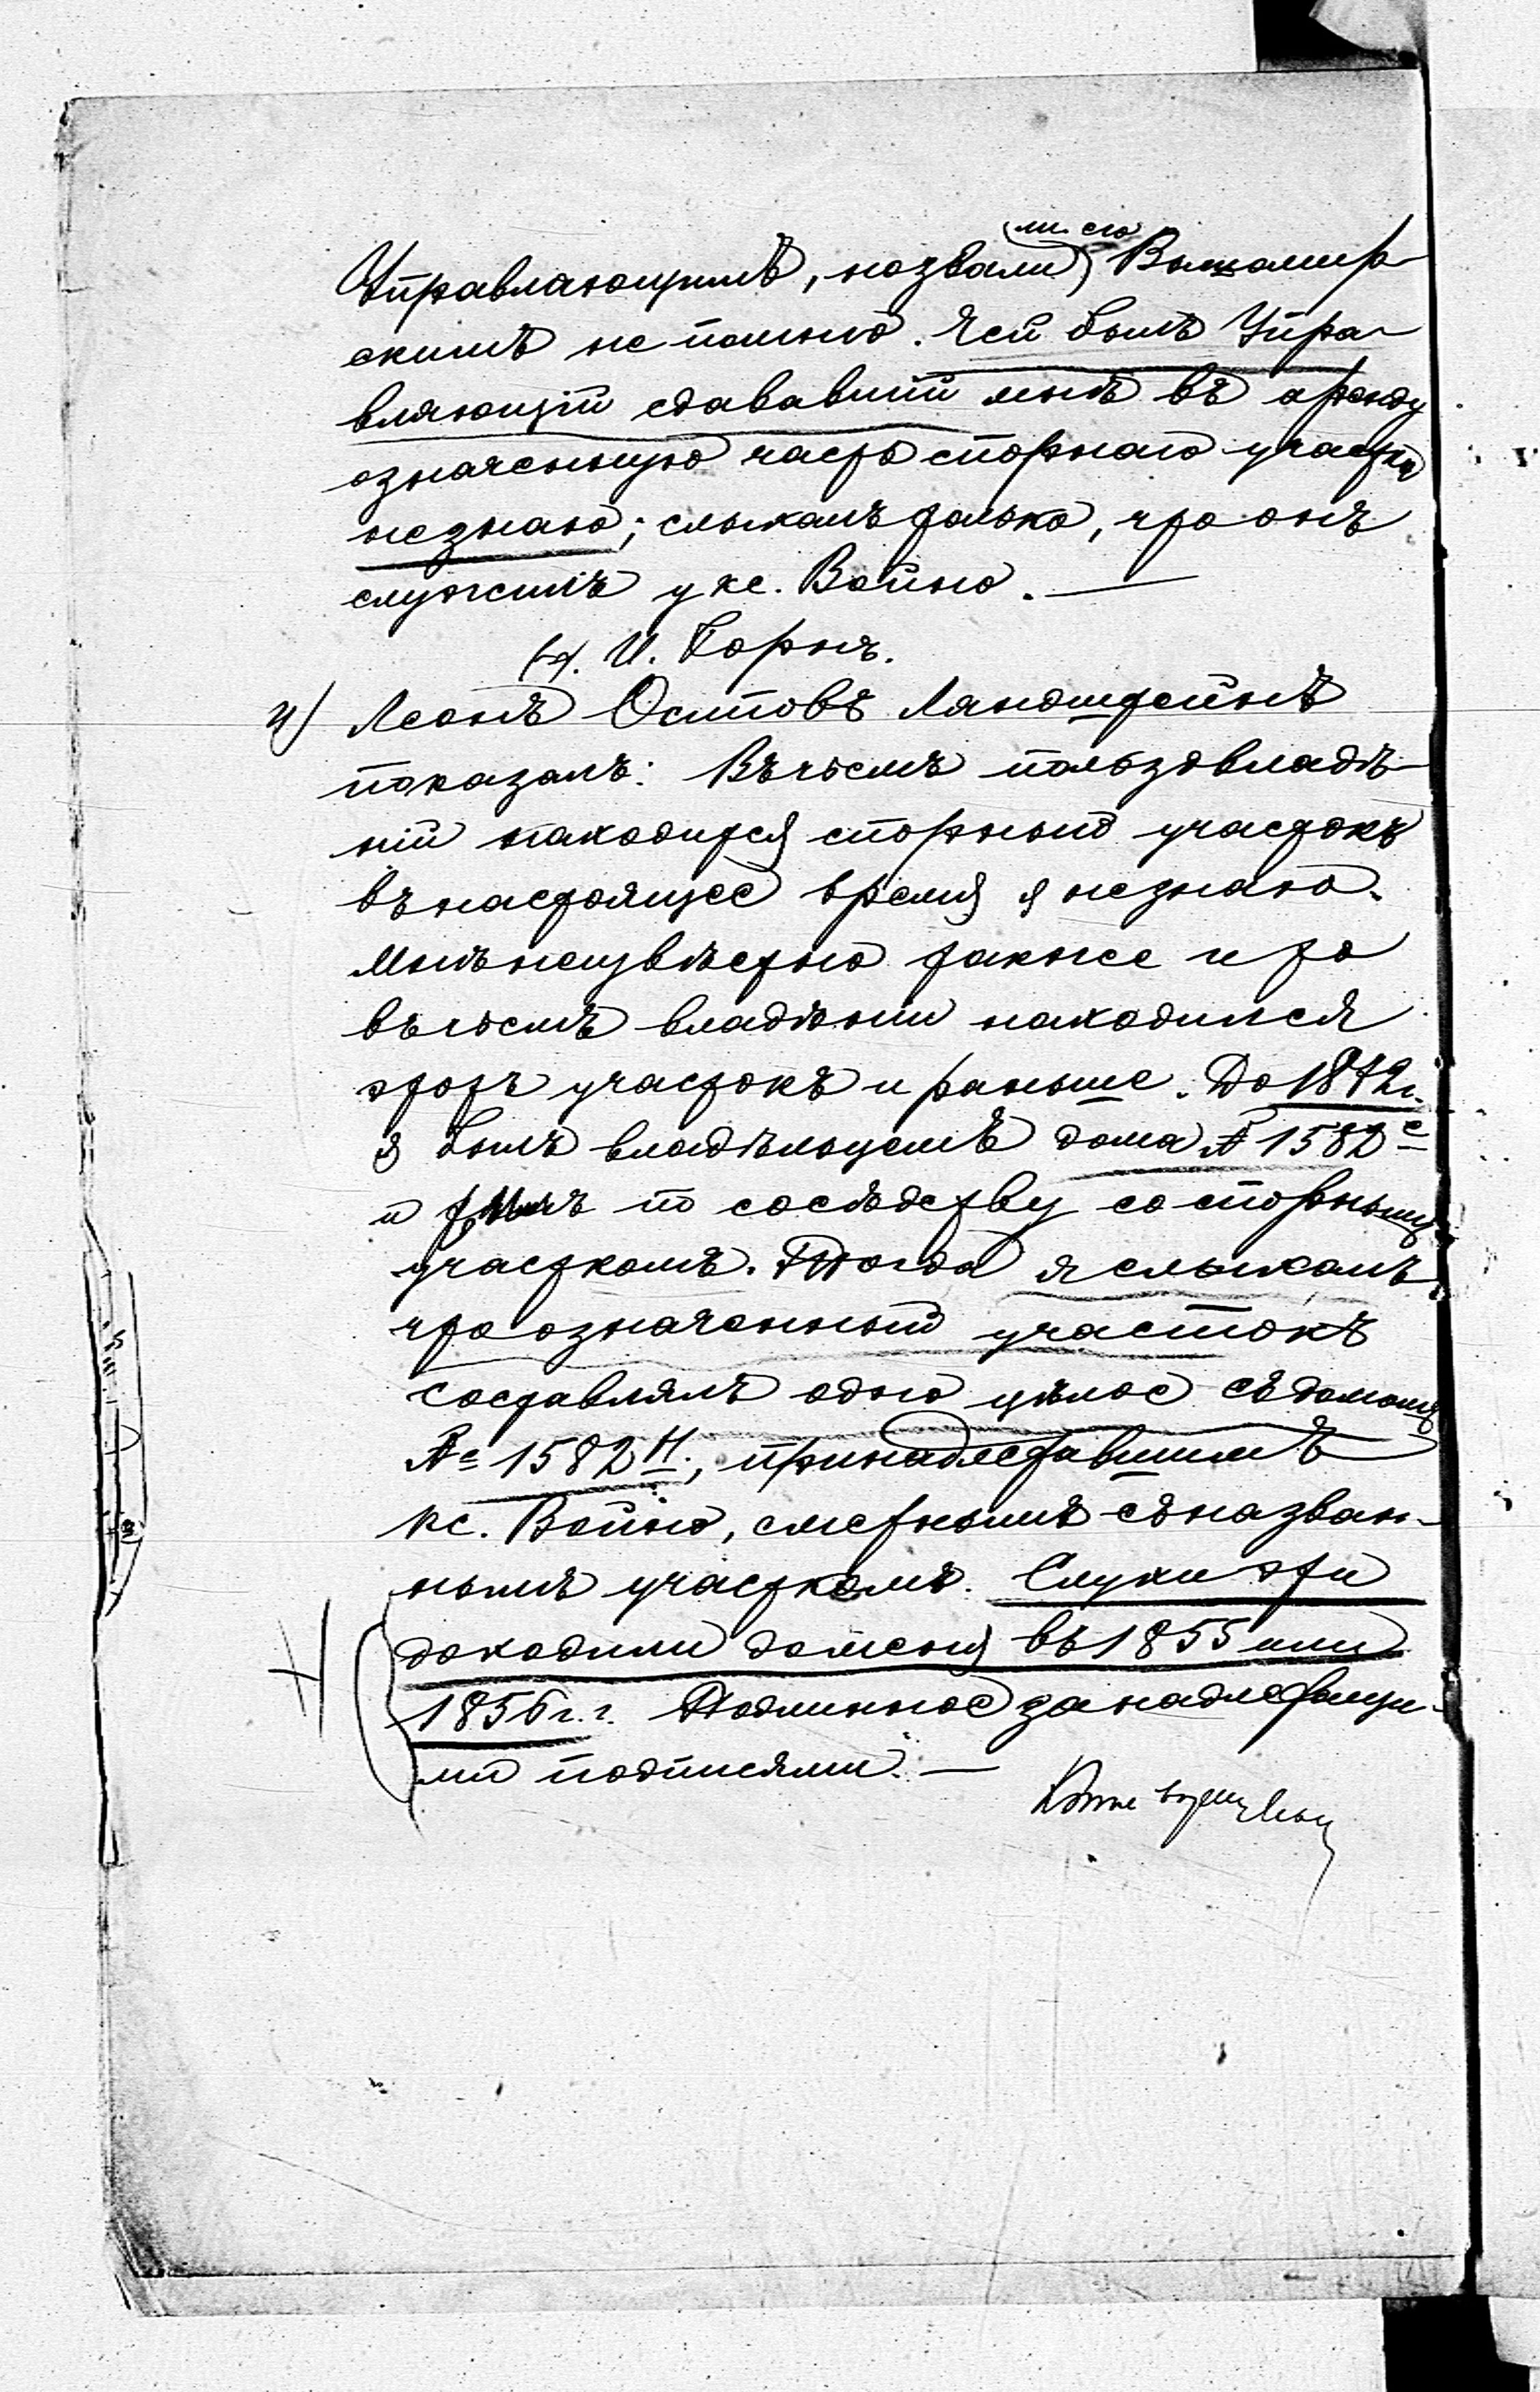 Управляющимъ, называли ли его Выжамир-
скимъ не помню. Чей былъ Упра-
вляющій сдававшій мнѣ въ аренду
означенную часть спорнаго участка
не знаю; слыхалъ только, что онъ
служилъ у кс. Войно. —
(–). И. Горнъ.
и) Леонъ Осиповъ Ландштейнъ
показалъ: Въ чьемъ пользовладѣ-
ніи находится спорный участокъ
въ настоящее время я не знаю.
Мнѣ неизвѣстно также и то
въ чьемъ владѣніи находился
этотъ участокъ и раньше. До 1872 г.
я былъ владѣльцемъ дома № 1582 с
и жилъ по сосѣдству со спорнымъ
участкомъ. Тогда я слыхалъ
что означенный участокъ
составлялъ одно цѣлое съ домомъ
№ 1582 Н., принадлежавшимъ
кс. Войно, смежнымъ съ назван-
нымъ участкомъ. Слухи эти
доходили до меня въ 1855 или
1856 г.г. Подлинное за надлежащи-
ми подписями. —